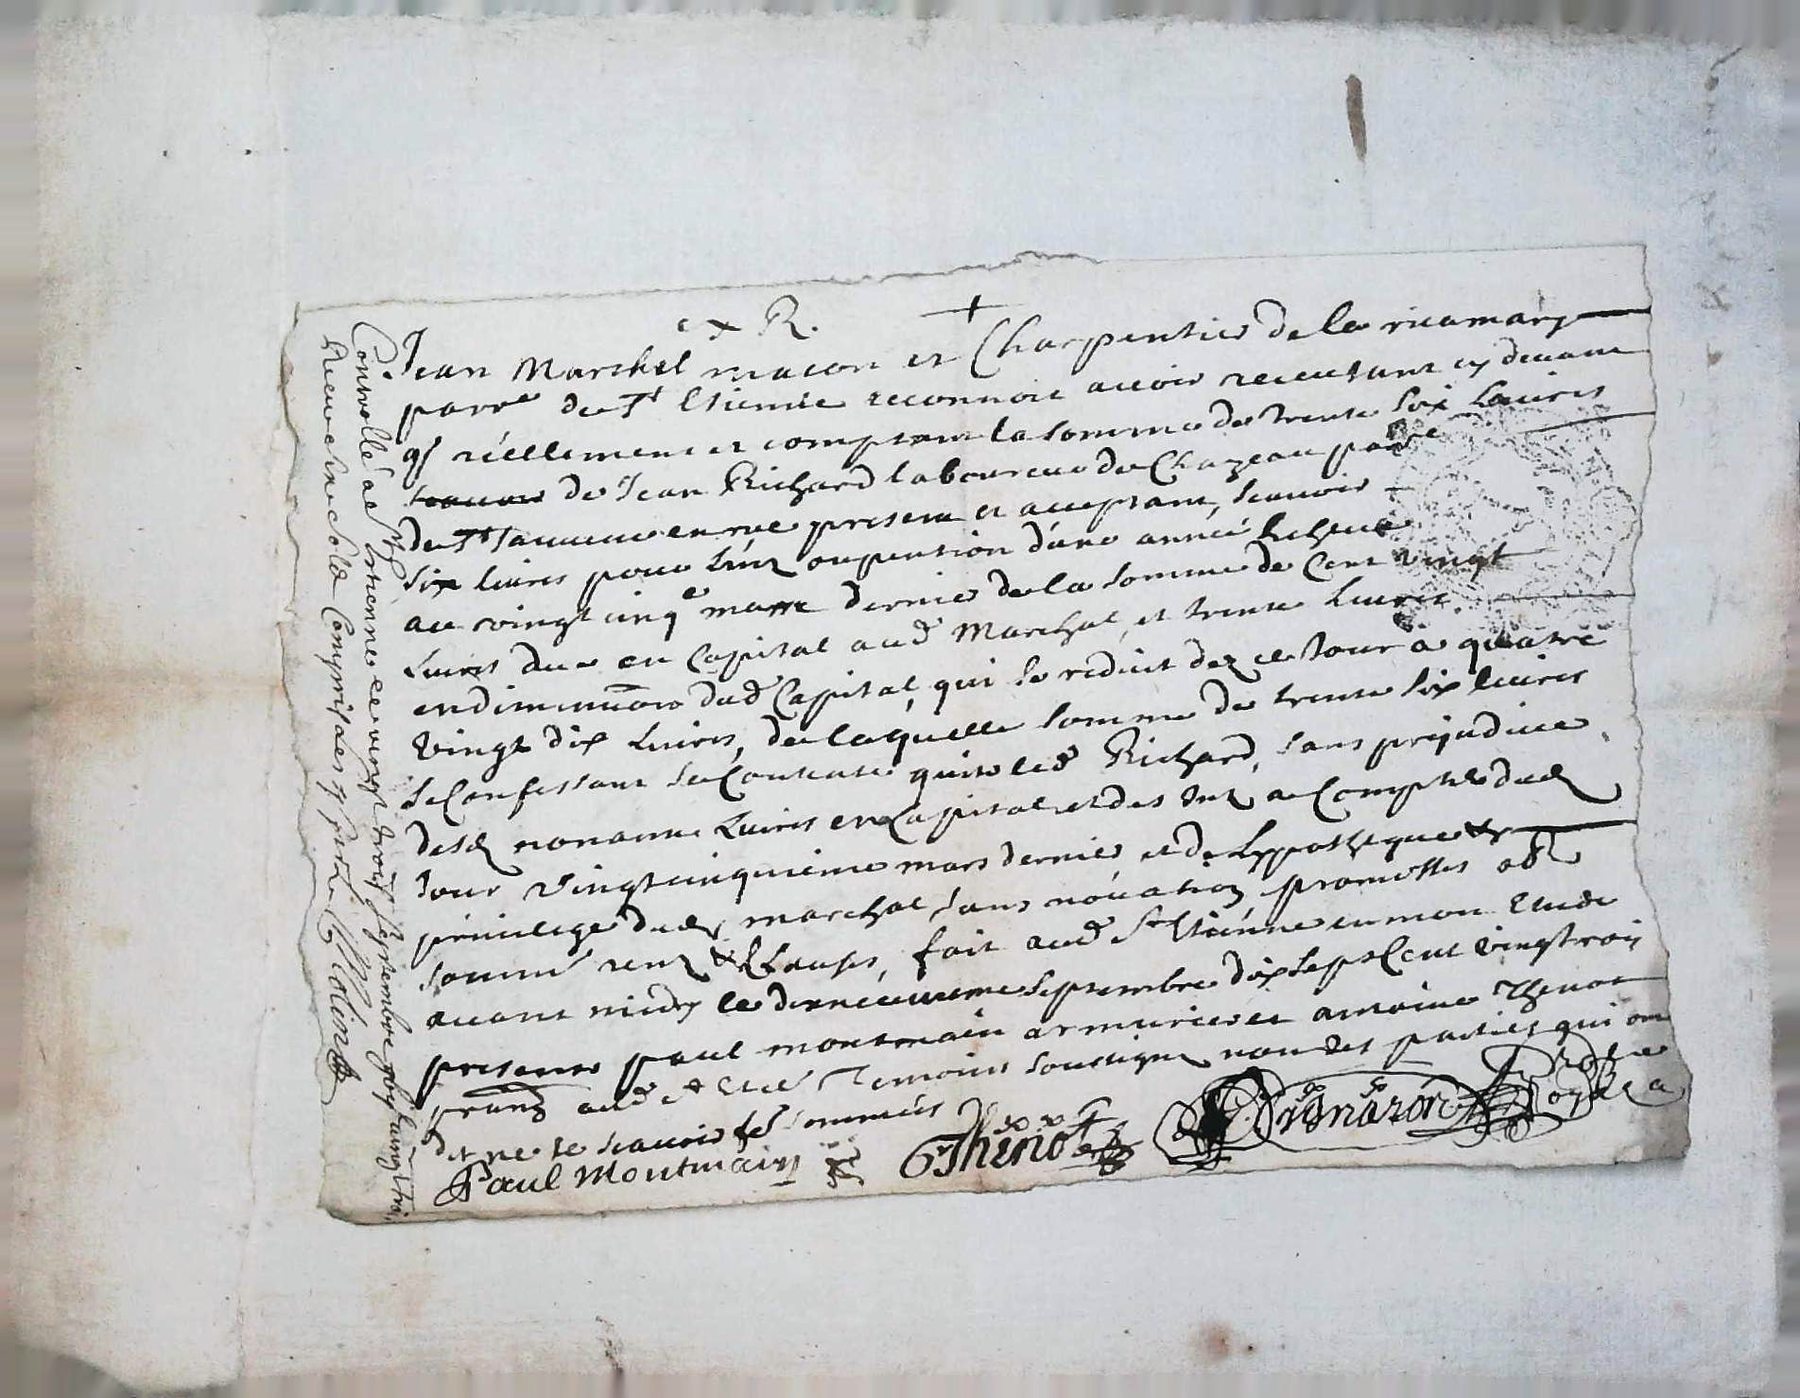 ex R. +
Jean Marchal macon et Charpentier de la ricamary
parr.e de St Etienne reconnoit auoir receu tant cy deuant
q.s réellement et comptant la somme de trente six Liures
de Jean Richard laboureur de Chazeau parr.e
de St jean presant et acceptant, scauoir
six liures pour l'int ou pention d'une année Echeue
au vingt cinq.e mars dernier de la somme de Cent vingt
Liures due en Capital aud Marchal, et trente Liures
en diminuon dud Capital, qui se reduit dez ce Jour a quatre
vingt dix Liures, de laquelle somme de trente six liures
se Confessant se Contente quite led Richard, sans prejudice
desd nonante Liures en Capital et des Int a Compter dud
Jour vingt cinquieme mars dernier et de Lypotheque &
priuilege dud marchal, sans nouation promettes obl
soumi renz & Clauses, fait aud St Etienne en mon Etude
auant midy le septembre dix sept Cent vingt trois
presents paul montmain armurier et antoine Thenot
pratiz aud St Etie Temoins soussignes non les parties qui ont
dit ne le scauoir de ce Sommées
Paul Montmain Thenot
Controllé a St Estienne ce vingt trois septembre
Receu Compris les Molin